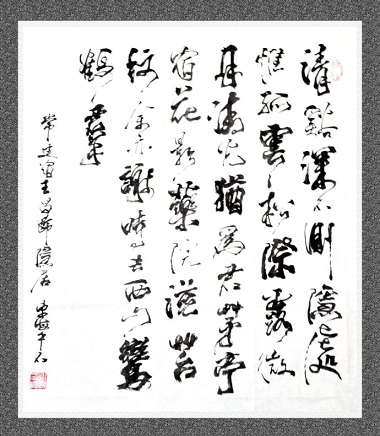 清谿深不測隱處
惟孤雲松際露微
月清光猶為君茅亭
宿花影藥院滋苔
紋余亦謝時去西山鸞
鶴羣
常建宿王昌齡隱居